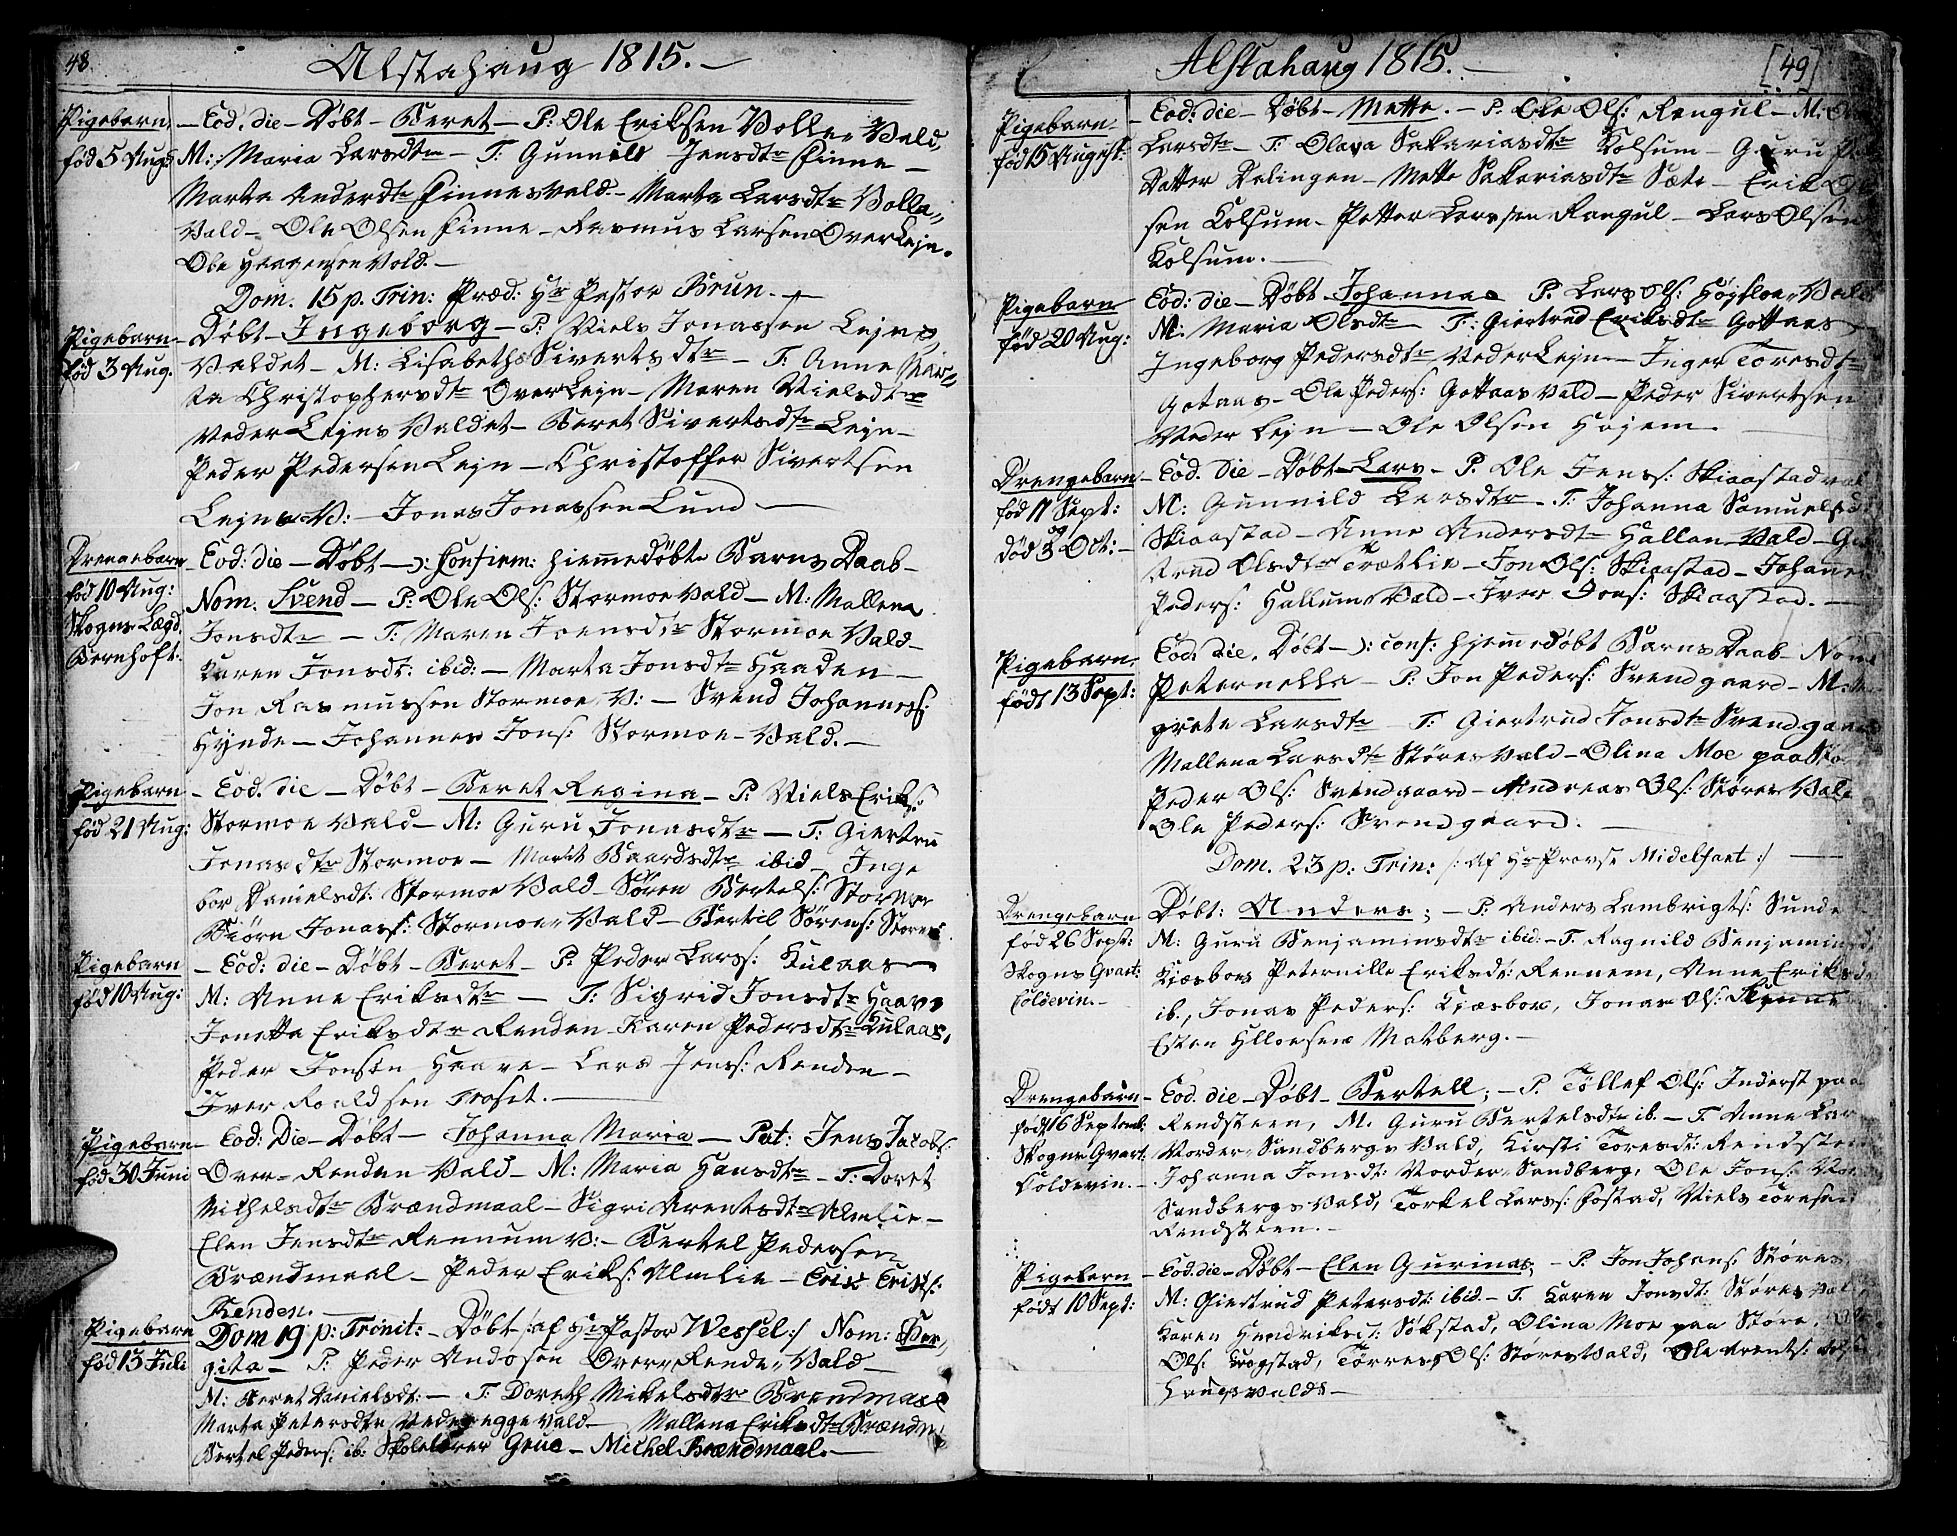 48.
Alstahaug 1815.
Pigebarn
fød 5 Aug:
– Eod. die – Døbt – Beret – P: Ole Eriksen Volle Vald,
M: Maria Larsdtr – T: Gunnild Jensdtr Finne –
Marta Andersdtr Finnesvald – Marta Larsdtr Volla
Vald – Ole Olsen Finne – Rasmus Larsen OverLejn.
Ole Vold. –
Dom. 15 p. Trin: Præd: Hr Pastor Brun. –
Pigebarn
fød 3 Aug.
Døbt – Ingeborg – P: Niels Jonassen Lejns
Valdet – M: Lisabeth Sivertsdtr – T: Anne Mar
ta Christophersdtr OverLejn – Maren Nielsdtr
NederLejns Valdet – Beret Sivertsdtr Lejn –
Peder Pedersen Lejn – Christoffer Sivertsen
Lejns V: – Jonas Jonassen Lund –
Drengebarn
fød 10 Aug:
Skogns Lægd.
Bernhoft:
Eod: die – Døbt –): Confirm: hiemedøbte Barns Daab –
Nom. Svend – P: Ole Ols: Stormoe Vald – M: Mallena
Jonsdtr – T: Maren Joensdtr Stormoe Vald –
Karen Jonsdt: ibid: – Marta Jonsdtr Haaden –
Jon Rasmussen Stormoe V: – Svend Johanness:
Hynde – Johannes Jons: Stormoe – Vald. –
Pigebarn
fød 21 Aug:
– Eod. die – Døbt – Beret Regina – P: Niels Eriks:
Stormoe Vald – M: Guru Jonasdtr – T: Giertru
Jonasdtr Stormoe – Marit Baardsdtr ibid – Inge
bor Danielsdt: Stormoe Vald – Sören Bertels: Stormoe
Biörn Jonass: Stormoe Vald – Bertil Sörens:
Pigebarn
fød 10 Aug:
– Eod: die – Døbt – Beret – P: Peder Lars: Kulaas
M: Anne Eriksdtr – T: Sigrid Jonsdtr Haave
Jonetta Eriksdtr Renden – Karen Pedersdtr Kulaas,
Peder Jonsen Haave – Lars Jens: Renden –
Iver Roaldsen Troset. –
Pigebarn
fød 30 Juni
– Eod: Die – Døbt – Johanna Maria – Pat: Jens Jacobs:
Over – Renden Vald – M: Maria Hansdtr – T: Doret
Mikelsdtr Brændmaal – Sigri Arentsdtr Almlie –
Elen Jensdtr Rennum V: – Bertel Pedersen
Brændmaal – Peder Eriks: Almlie – Erik Eriks:
Renden. –
Pigebarn
fød 15 Juli
Dom 19 p: Trinit: – Døbt /: af Hr Pastor Wessel :/ Nom: Ber
gita – P: Peder Andosen Over Rende Vald –
M: Beret Danielsdt: – T: Doreth Mikelsdtr Brendmaal
Marta Petersdtr Vald – Mallena Eriksdtr Brænd
Bertel Peders: ib: Skolelærer Grue – Michel Brændmaal. –
Alstahaug 1815.
[49]
Pigebarn
fød 15 August:
– Eod: die – Døbt – Mette. – P: Ole Ols: Rengul – M:
Larsdtr – T: Olava Sakariasdtr Kolsum – Guru
Datter Dalingen – Mette Sakariasdtr Sæte – Erik Ol
sen Kolsum – Petter Larssen Rengul – Lars Olsen
Kolsum. –
Pigebarn
fød 20 Aug:
Eod: die – Døbt – Johanna P: Lars Ols: Høyfloe Vald
M: Maria Olsdtr – T: Giertrud Eriksdtr Gottaas
Ingeborg Pedersdtr NederLejn – Inger Toresdtr
Gotaas – Ole Peders: Gottaas Vald – Peder Sivertsen
Neder Lejn – Ole Olsen Høyem –
Drengebarn
fød 17 Sept:
og
død 3 Oct: –
– Eod. die – Døbt – Lars – P. Ole Jens: Skiaastad
M: Gunnild Larsdtr – T: Johanna Samuelsd
Skiaastad – Anne Andersdtr Hallan Vald –
trud Olsdtr Trætlie – Jon Ols: Skiaastad – Johan
Peders: Hallum Vald – Iver Jons: Skiaastad. –
Pigebarn
født 13 Sept:
Eod: die. Døbt –): conf: hjemedøbt Barns Daab – Nom
Peternella – P: Jon Peders: Svendgaard – M:
grete Larsdtr – T: Giertrud Jonsdtr Svendgaard
Mallena Larsdtr Støres Vald – Olina Moe paa Stø
Peder Ols: Svendgaard – Andreas Ols: Støres Vald
Ole Peders: Svendgaard. –
Dom. 23 p: Trin: /: Af Hr Provst Midelfart :/ –
Drengebarn
fød 26 Sept:
Skogns Qvart:
Coldevin. –
Døbt: Anders; – P: Anders Lambrigts: Sunde
M: Guru Benjaminsdtr ibid: – T. Ragnild Benjaminsd
Kiæsboe Peternille Eriksdt: Rennem, Anne Eriksd
ib., Jonas Peders: Kiæsboe, Jonas Ols:
Esten Matberg. –
Drengebarn
født 16 Septemb:
Skogns Qvart:
Coldevin. –
– Eod. die – Døbt – Bertell; – P. Töllef Ols: Inderst paa
Rendsteen, M. Guru Bertelsdtr ib. – T. Anne Lar
Norder Sandbergs Vald, Kirsti Toresdt: Rendsten
Johanna Jonsdt: Norder Sandberg, Ole Jons: Nor
Sandbergs Vald, Torkel Lars: Fostad, Niels Toresen
Rendsteen. –
Pigebarn
født 10 Sept:
– Eod. die – Døbt – Elen Gurina; – P. Jon Johans: Støres
M: Giertrud Petersdt: ibid. – T. Karen Jonsdt: Støres Val
Karen Hendriksdt: Søkstad, Olina Moe paa Støre,
Ols: Togstad, Torres Ols: Støres Vald, Ole Arents:
Valdt –